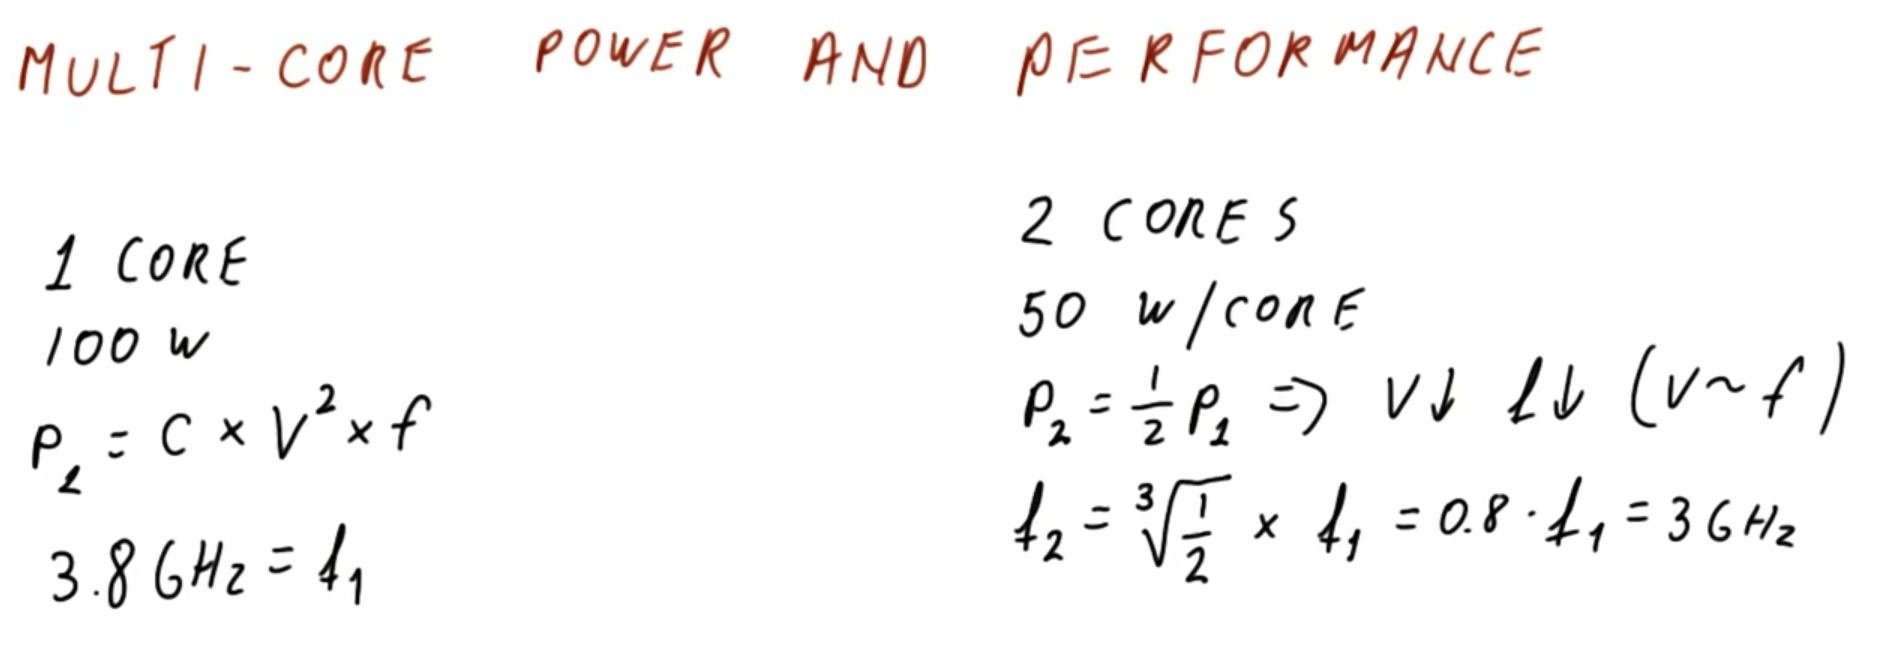 MULTI-CORE POWER AND PERFORMANCE
1 CORE
100 W
P₁ = C × V² × f
3.8 GHz = f₁
2 CORES
50 W/CORE
P₂ = 1/2 P₁ ⇒ V↓ f↓ (V~f)
f₂ = ∛(1/2) × f₁ = 0.8 · f₁ = 3 GHz